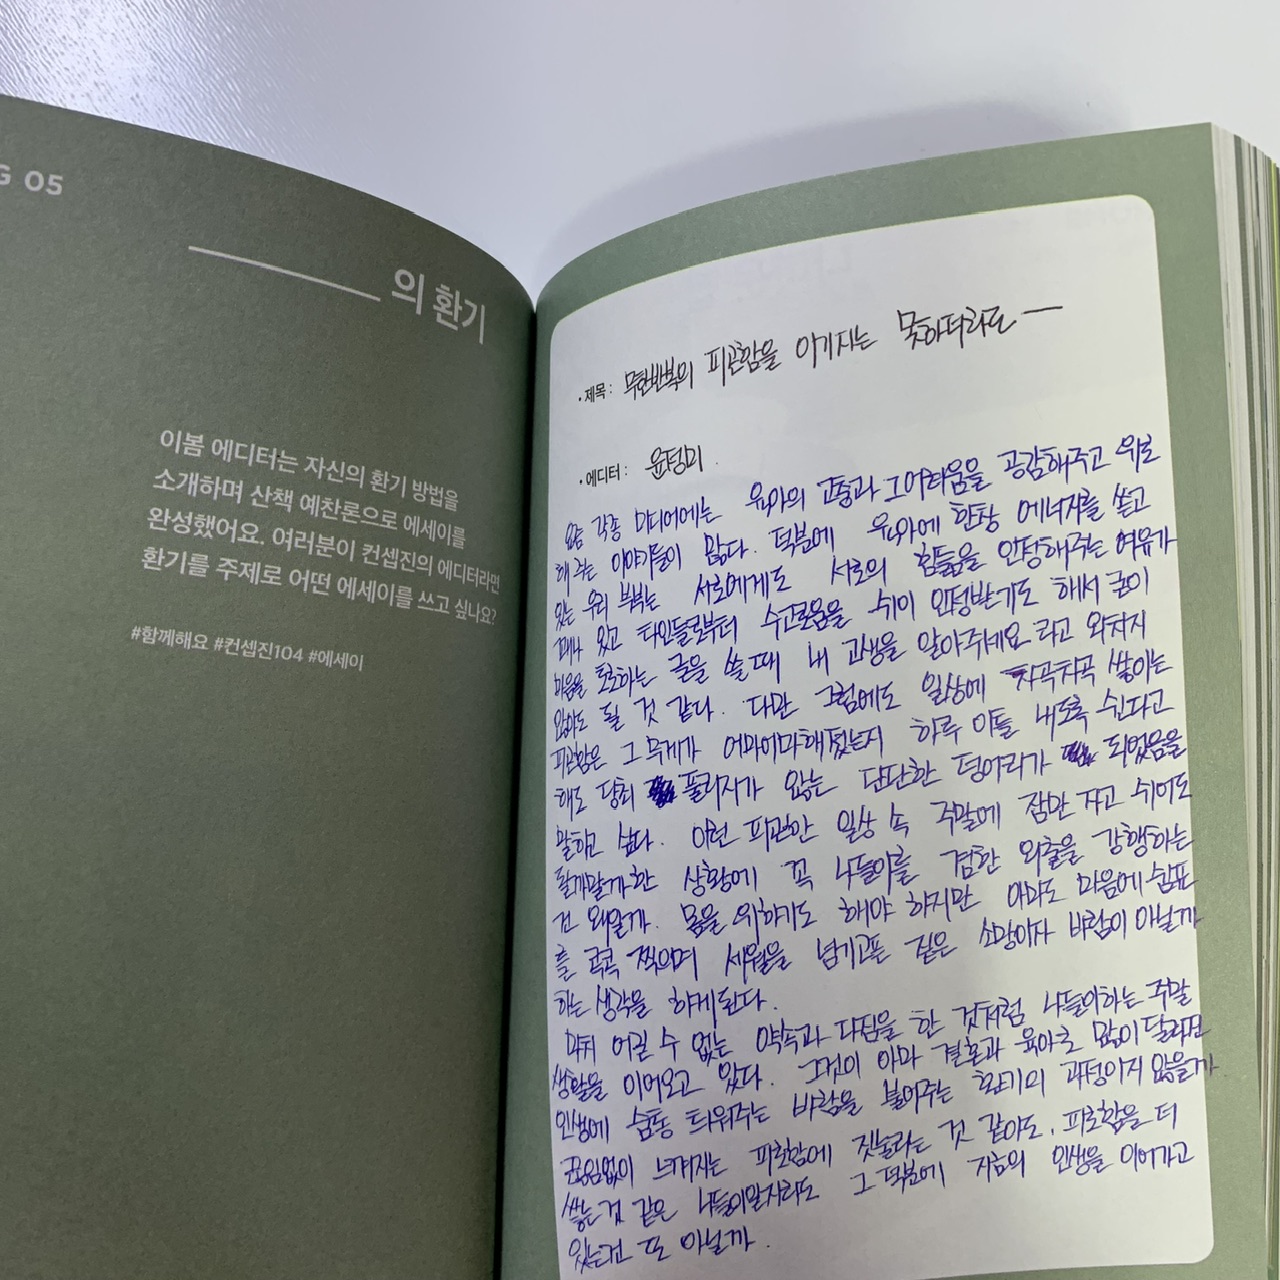 G 05
의 환기
이봄 에디터는 자신의 환기 방법을
소개하며 산책 예찬론으로 에세이를
완성했어요. 여러분이 컨셉진의 에디터라면
환기를 주제로 어떤 에세이를 쓰고 싶나요?
#함께해요 #컨셉진104 #에세이
• 제목 : 무한반복의 피곤함을 이기지는 못하더라도 ―
• 에디터 : 윤정미.
요즘 각종 미디어에는 육아의 고충과 그 어려움을 공감해주고 위로
해 주는 이야기들이 많다. 덕분에 육아에 한창 에너지를 쏟고
있는 우리 부부는 서로에게도 서로의 힘듦을 인정해주는 여유가
꽤나 있고 타인들로부터 수고로움을 쉬이 인정받기도 해서 굳이
마음을 토로하는 글을 쓸 때 내 고생을 알아주세요 라고 외치지
않아도 될 것 같다. 다만 그럼에도 일상에 차곡차곡 쌓이는
피곤함은 그 무게가 어마어마해졌는지 하루 이틀 내도록 쉰다고
해도 당최 풀리지가 않는 단단한 덩어리가 되었음을
말하고 싶다. 이런 피곤한 일상 속 주말에 잠만 자고 쉬어도
될까말까한 상황에 꼭 나들이를 겸한 외출을 강행하는
건 왜일까. 몸을 위하기도 해야 하지만 아마도 마음에 쉼표
를 콕콕 찍으며 세월을 넘기고픈 짙은 소망이자 바람이 아닐까
하는 생각을 하게된다.
마치 어길 수 없는 약속과 다짐을 한 것처럼 나들이하는 주말
생활을 이어오고 있다. 그것이 아마 결혼과 육아로 많이 달라진
인생에 숨통 틔워주는 바람을 불어주는 환기의 과정이지 않을까
끊임없이 느껴지는 피곤함에 짓눌리는 것 같아도, 피로함을 더
쌓는 것 같은 나들이일지라도 그 덕분에 지금의 인생을 이어가고
있는건 또 아닐까.